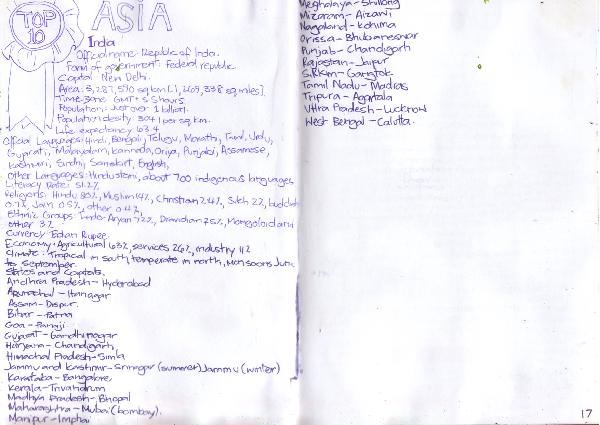 TOP
10
ASIA
India
Official name: Republic of India.
Form of government: Federal republic
Capital: New Delhi.
Area: 3,287,590 sq km [1,269,338 sq miles]
Time zone: GMT + 5.5 hours.
Population: Just over 1 billion
Population desity: 304.1 per sq km.
Life expectancy 63.4
Offcial Languages: Hindi, Bengali, Telugu, Marathi, Tamil, Urdu,
Gujarati, Malayalam, kannada, Oriya, Punjabi, Assamese,
Kashmiri, Sindhi, Sanskirt, English,
Other Languages: Hindustani, about 700 indigenous languages
Literacy Rate: 51.2%
Religions: Hindu 80%, Muslim 14%, Christian 2.4%, Sikh 2%, buddhist
0.7%, Jain 0.5%, other 0.4%
Ethnic Groups: Indo-Aryan 72%, Dravidian 25%, Mongoloid and
other 3%
Currency: Indian Rupee.
Economy: Agricultural 63%, services 26%, industry 11%
Climate: Tropical in south, temperate in north, Monsoons June
to September.
States and Capitals.
Andhra Pradesh - Hyderabad
Arunachal - Itanagar
Assam - Dispur.
Bihar - Patna
Goa - Panaji.
Gujarat - Gandhinagar
Haryana - Chandigarh,
Himachal Pradesh - Simla
Jammu and Kashmir - Srinagar (summer) Jammu (winter)
Karataka - Bangalore,
Kerala - Trivandrum
Madhya Pradesh - Bhopal
Maharashtra - Mubai (bombay).
Manipur - Imphal
Meghalaya - Shillong
Mizaram - Aizawl
Nagaland - kohima
Orissa - Bhubanesnar
Punjab - Chandigarh
Rajastan - Jaipur
Sikkim - Gangtok
Tamil Nadu - Madras
Tripura - Agartala
Uttra Pradesh - Lucknow
West Bengal - Calutta.
17